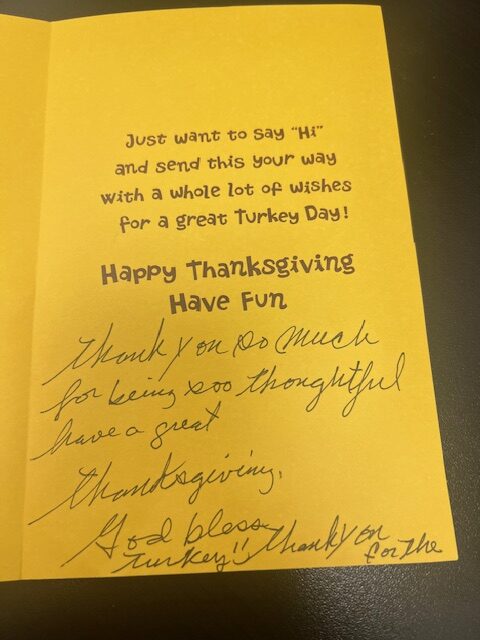 Just want to say "Hi"
and send this your way
with a whole lot of wishes
for a great Turkey Day!
Happy Thanksgiving
Have Fun
Thank You so much
for being soo thoughtful
have a great
Thanksgiving.
God bless
Thank You for the
Turkey!!